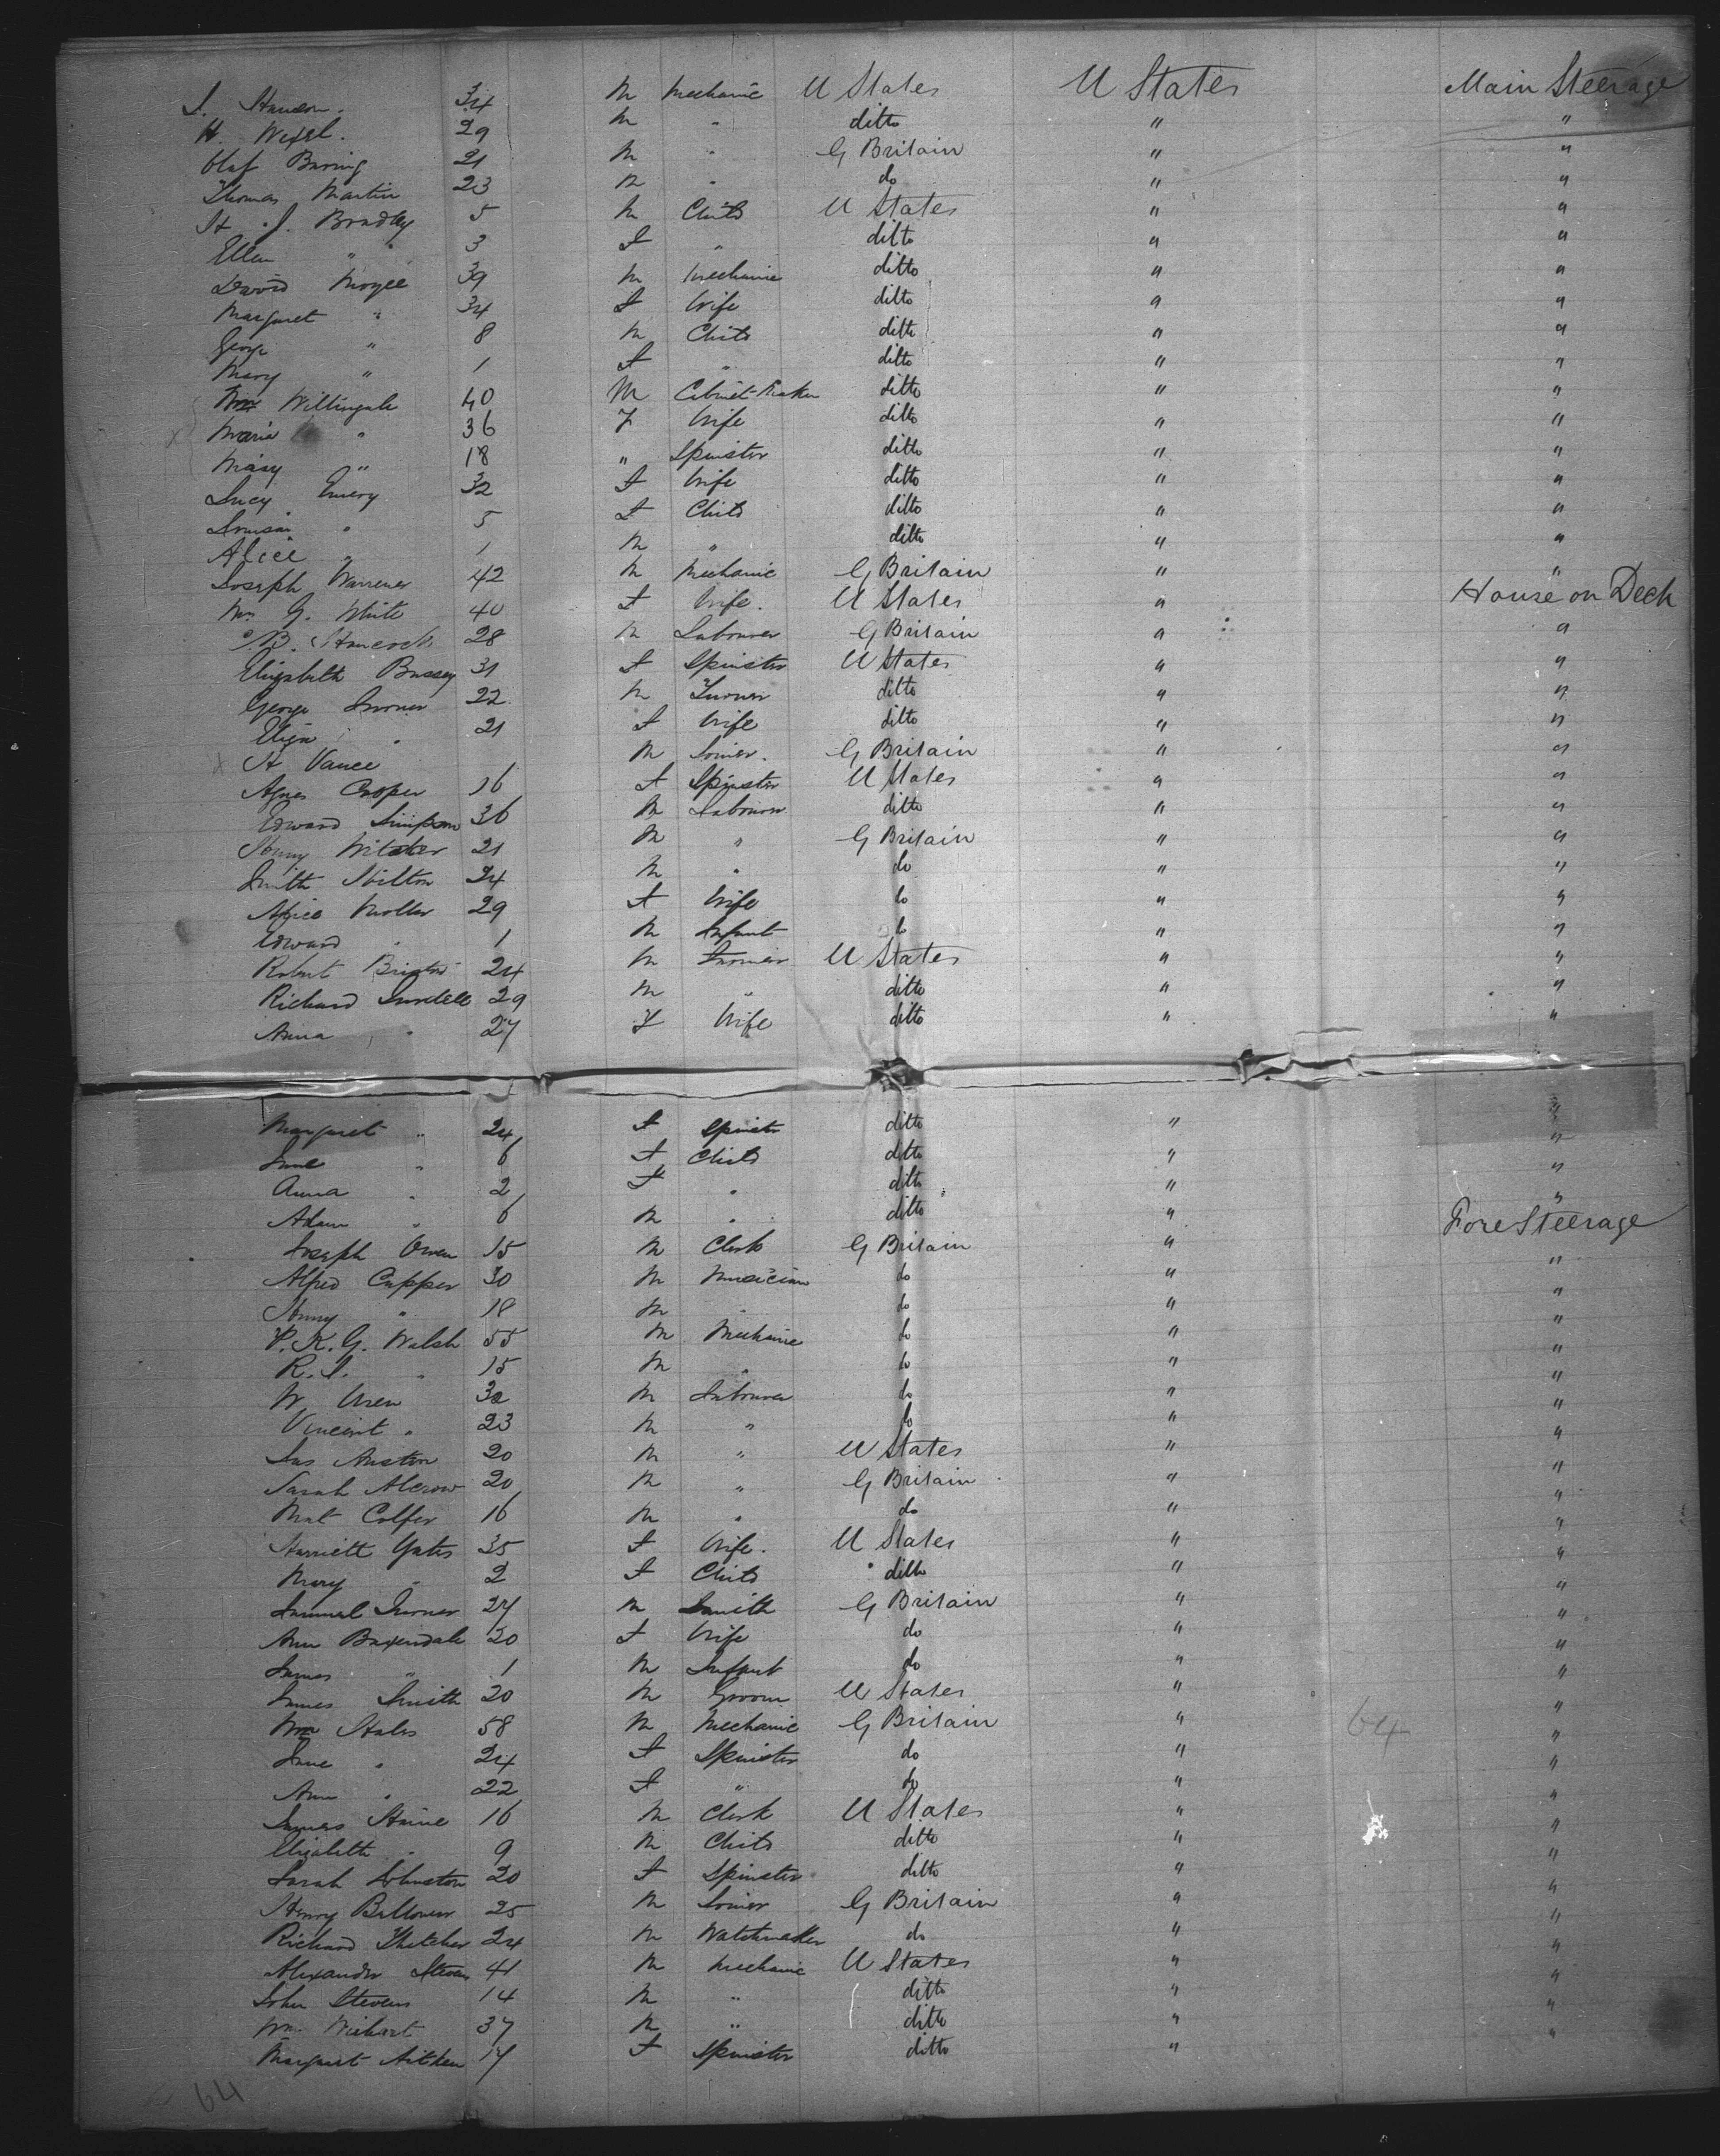 34 M Mechanic U States U States Main Steerage
H. 29 M " ditto " "
Olaf 21 M " G Britain " "
Thomas Martin 23 M " do " "
H. J. Bradley 5 M Child U States " "
Ellen " 3 F " ditto " "
David 39 M Mechanic ditto " "
Margaret " 34 F Wife ditto " "
George " 8 M Child ditto " "
Mary " 1 F " ditto " "
Wm Willingale 40 M Cabinet Maker ditto " "
Maria " 36 F Wife ditto " "
Mary " 18 " Spinster ditto " "
Lucy Emery 32 F Wife ditto " "
Louisa " 5 F Child ditto " "
Alice " 1 M " ditto " "
Joseph Warrener 42 M Mechanic G Britain " "
G. White 40 F Wife. U States " House on Deck
B. Hancock 28 M Labourer G Britain " "
Elizabeth Bussey 31 F Spinster U States " "
George Turner 22 M ditto " "
Eliza " 21 F Wife ditto " "
H Vance M Joiner. G Britain " "
Agnes Cooper 16 F Spinster U States " "
Edward Simpson 36 M Labourer ditto " "
Henry Witcher 21 M " G Britain " "
Smith Hilton 24 M " do " "
Alice 29 F Wife do " "
Edward " 1 M Infant do " "
Robert 24 M U States " "
Richard 29 M " ditto " "
Anna " 27 F Wife ditto " "
Margaret " 24 F Spinster ditto " "
Jane " 6 F Child ditto " "
Anna " 2 F " ditto " "
Adam " 6 M " ditto " "
Joseph Owen 15 M Clerk G Britain " Fore Steerage
Alfred Cupper 30 M Musician do " "
Henry " 18 M " do " "
P. K. G. Walsh 55 M Mechanic do " "
R. J. " 15 M " do " "
W Uren 32 M Labourer do " "
Vincent " 23 M " do " "
Jas Austin 20 M " U States " "
Sarah 20 M " G Britain " "
Mat Colfer 16 M " do " "
Harriett Yates 35 F Wife. U States " "
Mary " 2 F Child ditto " "
Samuel Turner 27 M Smith G Britain " "
Ann Baxendale 20 F Wife do " "
James " 1 M Infant do " "
James Smith 20 M Groom U States " "
Wm Hales 58 M Mechanic G Britain " 64 "
Jane " 24 F Spinster do " "
Ann " 22 F " do " "
James 16 M Clerk U States " "
Elizabeth " 9 M Child ditto " "
Sarah Johnston 20 F Spinster ditto " "
Henry 25 M Joiner G Britain " "
Richard Thatcher 24 M Watchmaker do " "
Alexander Steven 41 M Mechanic U States " "
John Stevens 14 M " ditto " "
Wm. Wishart 37 M " ditto " "
Margaret Aitken 17 F Spinster ditto " "
64